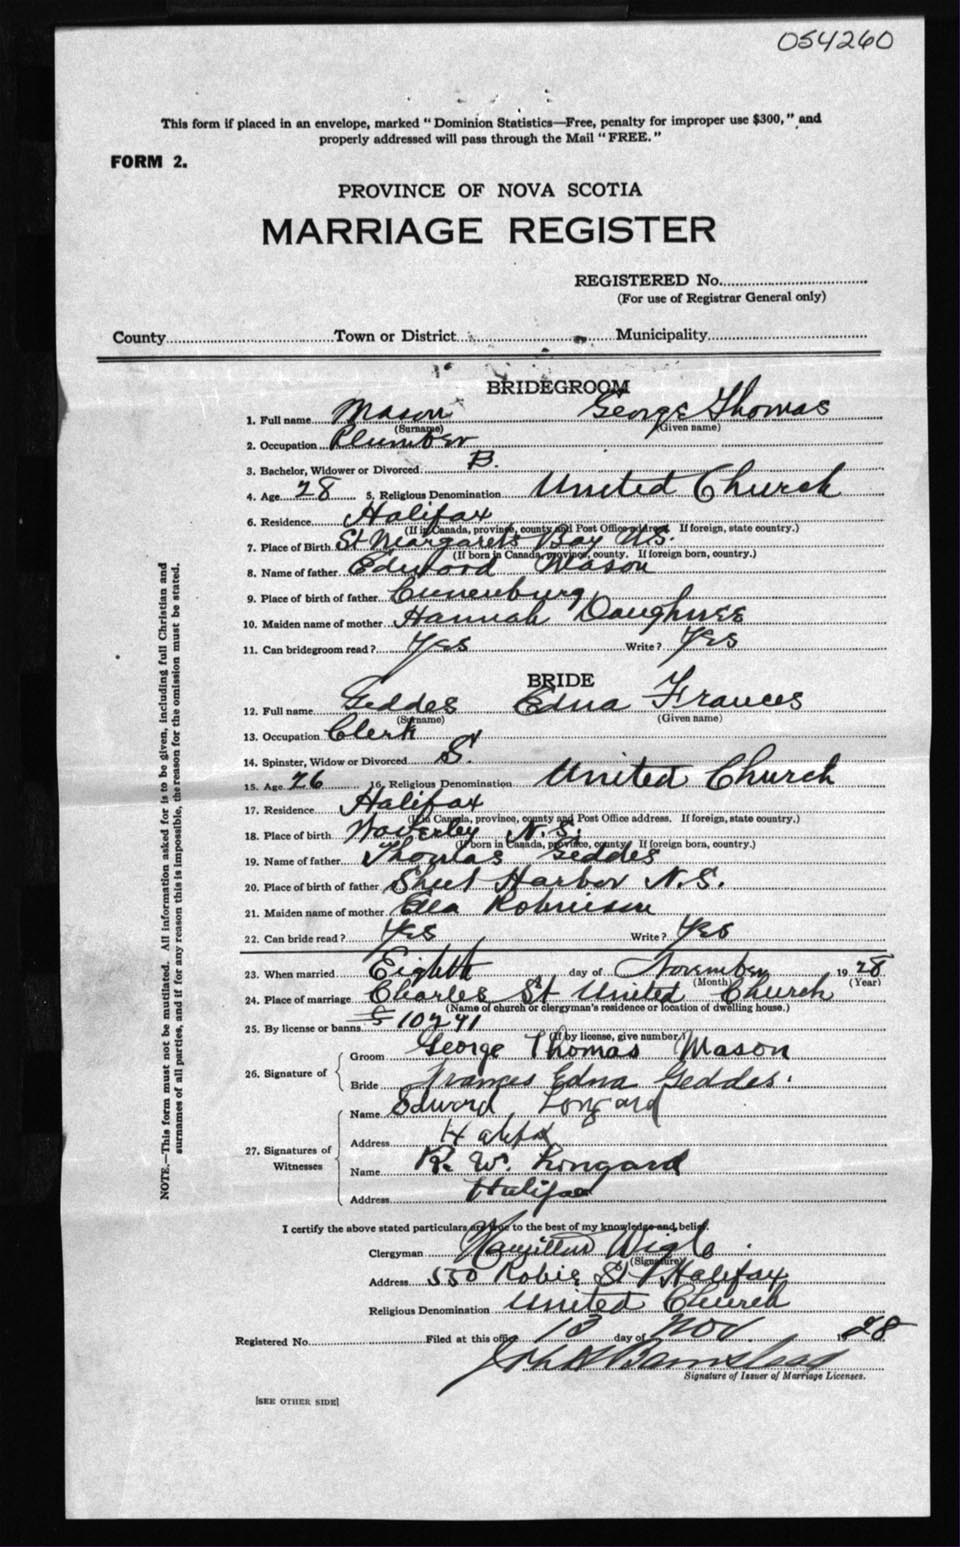 054260
This form if placed in an envelope, marked "Dominion Statistics—Free, penalty for improper use $300," and
properly addressed will pass through the Mail "FREE."
FORM 2.
PROVINCE OF NOVA SCOTIA
MARRIAGE REGISTER
REGISTERED No.
(For use of Registrar General only)
County Town or District Municipality
BRIDEGROOM
1. Full name Mason George Thomas
(Surname) (Given name)
2. Occupation Plumber
3. Bachelor, Widower or Divorced B.
4. Age 28 5. Religious Denomination United Church
6. Residence Halifax
(If in Canada, province, county and Post Office address. If foreign, state country.)
7. Place of Birth St Margarets Bay N.S.
(If born in Canada, province, county. If foreign born, country.)
8. Name of father Edward Mason
9. Place of birth of father Lunenburg
10. Maiden name of mother Hannah
11. Can bridegroom read? Yes Write? Yes
BRIDE
12. Full name Geddes Edna Frances
(Surname) (Given name)
13. Occupation Clerk
14. Spinster, Widow or Divorced S.
15. Age 26 16. Religious Denomination United Church
17. Residence Halifax
(If in Canada, province, county and Post Office address. If foreign, state country.)
18. Place of birth Waverley N.S.
(If born in Canada, province, county. If foreign born, country.)
19. Name of father Thomas Geddes
20. Place of birth of father Sheet Harbor N.S.
21. Maiden name of mother Ella Robinson
22. Can bride read? Yes Write? Yes
23. When married Eighth day of November 1928
(Month) (Year)
24. Place of marriage Charles St United Church
(Name of church or clergyman's residence or location of dwelling house.)
25. By license or banns 10241
(If by license, give number.)
26. Signature of Groom George Thomas Mason
Bride Frances Edna Geddes.
27. Signatures of Witnesses Name Edward Longard
Address Halifax
Name R. W. Longard
Address Halifax
I certify the above stated particulars are true to the best of my knowledge and belief.
Clergyman Hamilton Wigle.
(Signature)
Address 550 Robie St Halifax
Religious Denomination United Church
Registered No. Filed at this office 13 day of Nov 1928
John H Barnstead
Signature of Issuer of Marriage Licenses.
[SEE OTHER SIDE]
NOTE.—This form must not be mutilated. All information asked for is to be given, including full Christian and
surnames of all parties, and if for any reason this is impossible, the reason for the omission must be stated.